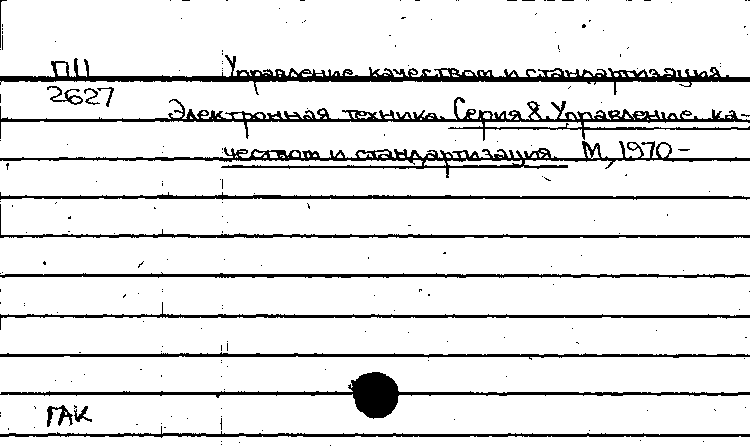 П11 Управление качеством и стандартизация.
2627
Электронная техника. Серия 8. Управление ка-
чеством и стандартизация. М., 1970 –
ГАК